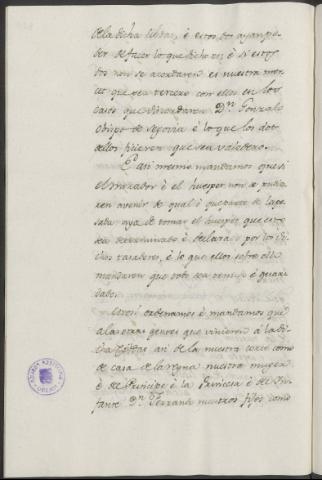 de la dicha cibdat, è estos dos ayan po
der de facer lo que dicho es, è si estos
dos non se acordaren es nuestra mer
ced que sea tercero con ellos en los
casos que discordaren Dn. Gonzalo
obispo de Segovia è lo que los dos
dellos ficieren que sea valedero.
Et asi mesmo mandamos que si
el morador è el huesped non se pudie
ren avenir de qual è que parte de la po
sada aya de tomar el huesped que esto
sea determinado è declarado por los di
chos è lo que ellos sobre ello
mandaren que esto sea tenido è guar
dado.
Otrosi ordenamos è mandamos que
a las otras gentes que vinieren à la di
cha cibdat asi de la nuestra corte como
de casa de la reyna nuestra muger
è del Principe è la Princesa è del In
fante Dn. Ferrando nuestros fijos como